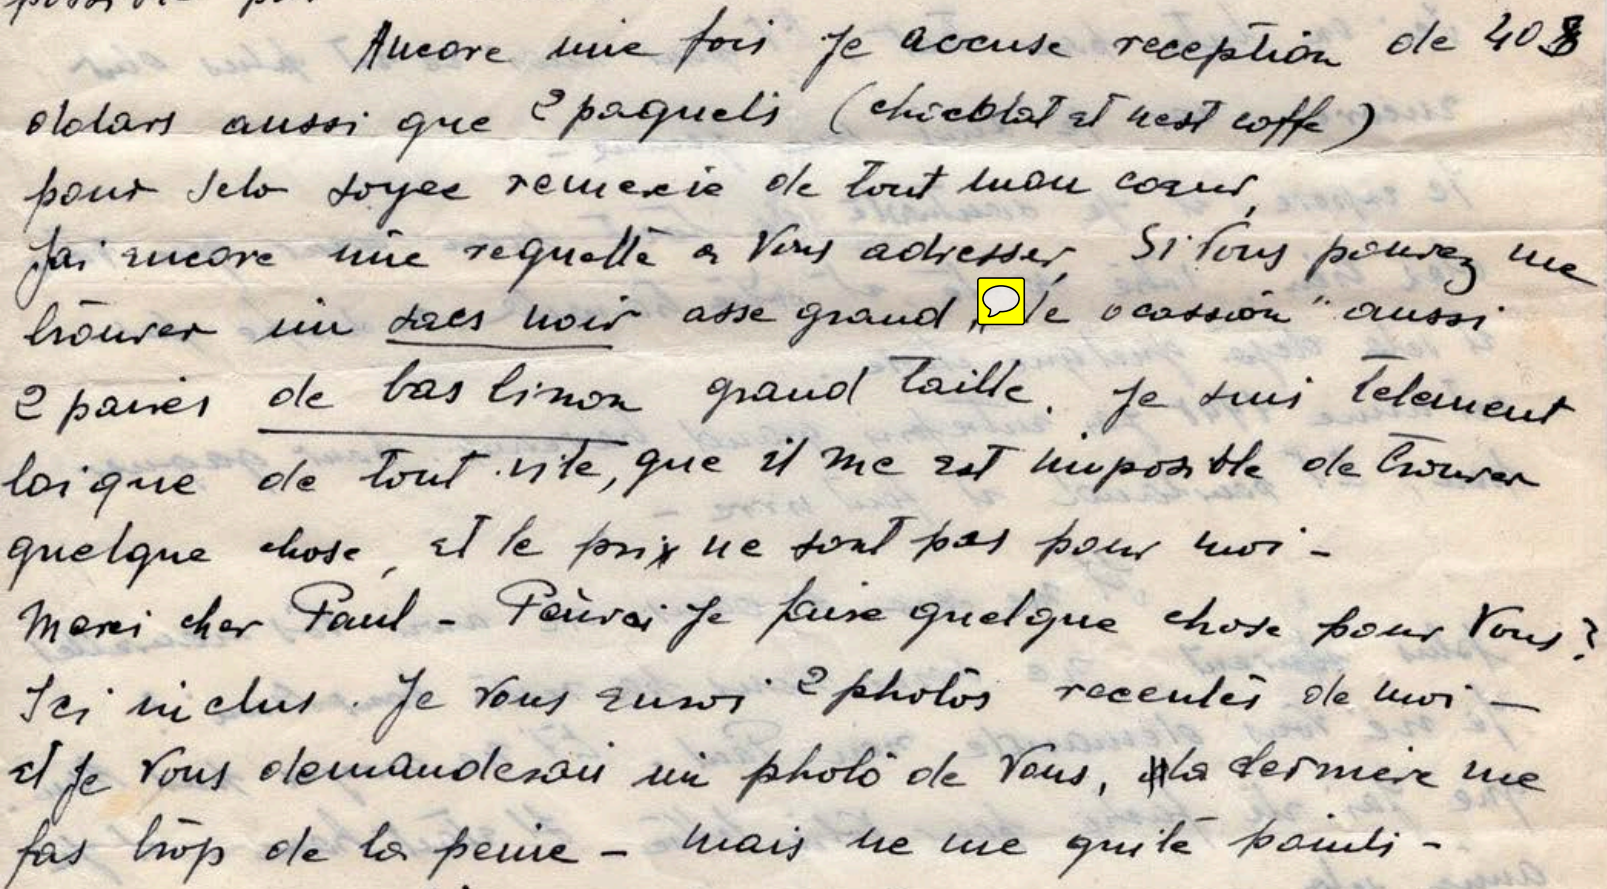 Ancore une fois je accuse reception de 40$
dolars aussi que 2 paquets (chocolat et nest coffe)
pour selo soyee remercie de tout mon cœur,
Jai encore une requette a Vous adresser, Si Vous pouvez me
trouver un sacs noir asse grand „ de ocassion" aussi
2 paires de bas linon grand taille. Je suis telement
loique de tout vite, que il me est imposible de trouver
quelque chose, et le prix ne sont pas pour moi -
Merci cher Paul - Pouvai je faire quelque chose pour Vous?
Ici inclus. Je vous envoi 2 photos recentes de moi -
et je Vous demanderais un photo de Vous, la derniere me
fas trop de la peine - mais ne me quite points -